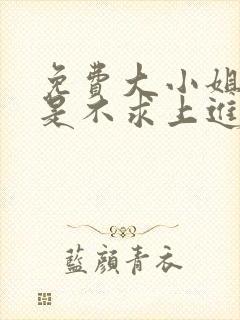 免費大小姐
是不求上進
藍顏青衣